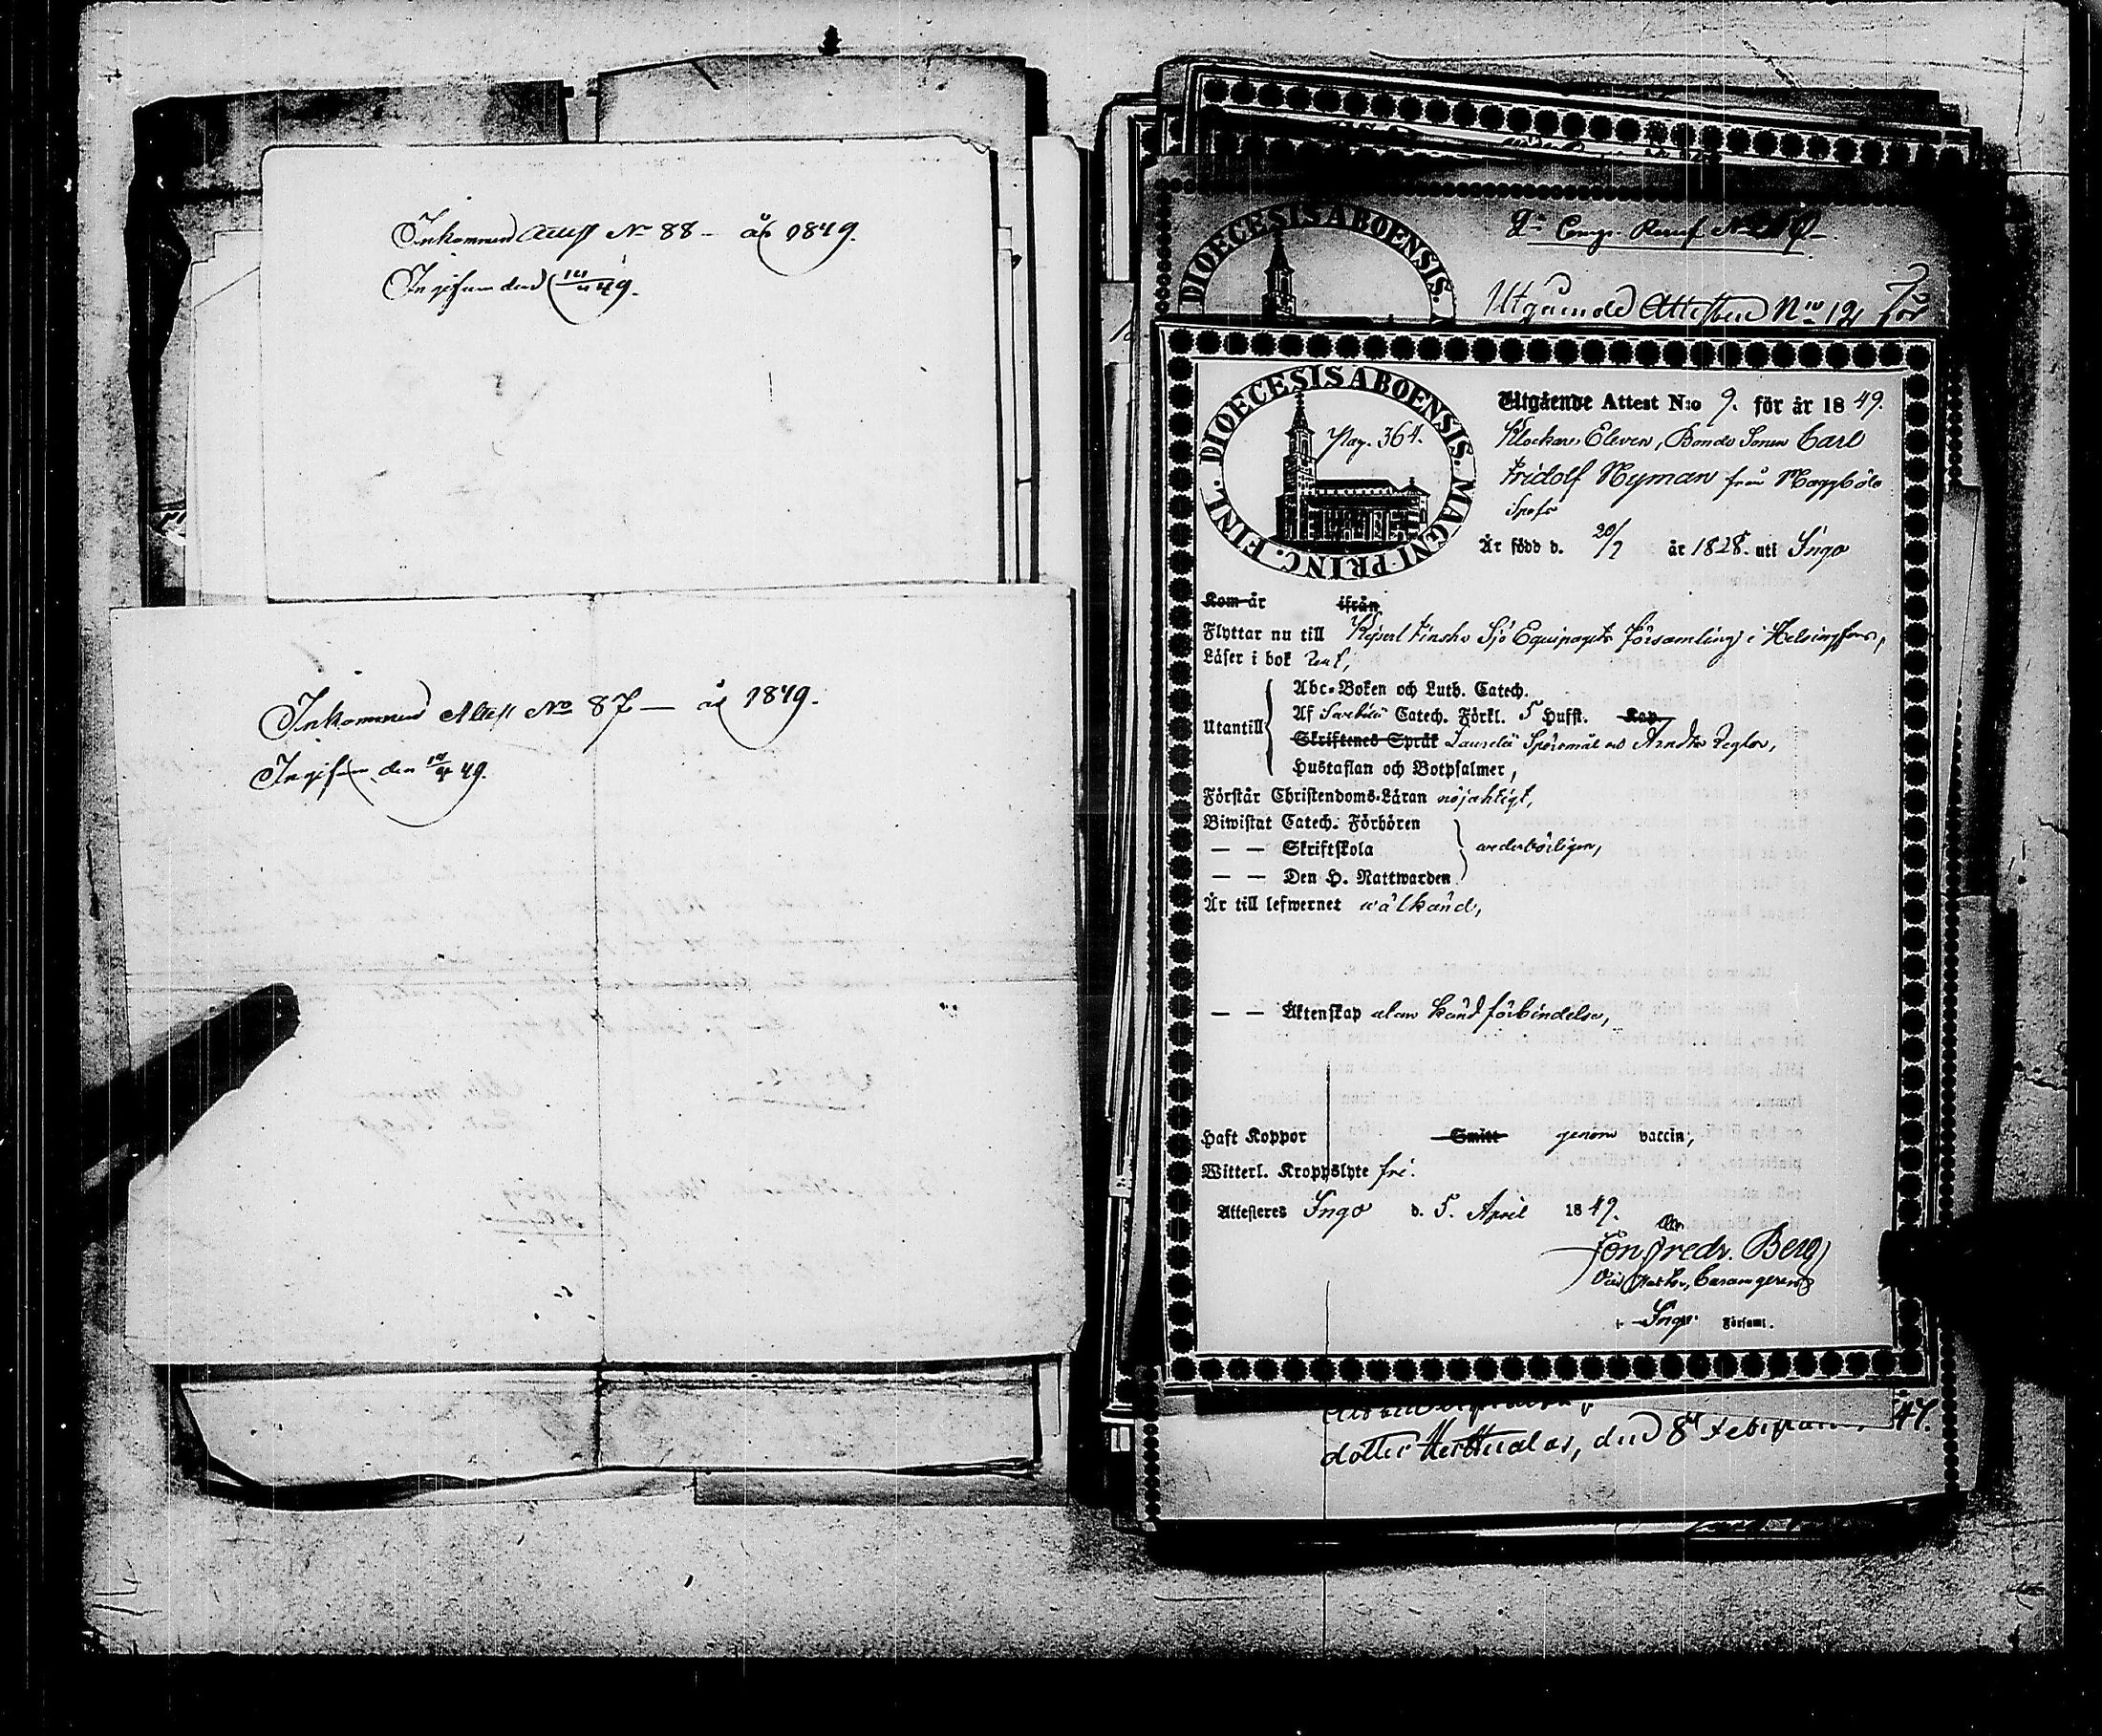 Inkommen Attest No 88 — år 1849.
Ingifven den 49.
Inkommen Attest No 87 — år 1849.
Ingifven den 49.
DIOECESIS ABOENSIS.
Utgående Attesten No 12 för
DIOECESIS ABOENSIS. MAGNI PRINC. FINL.
Pag. 364.
Utgående Attest N:o 9. för år 1849.
Klockare Eleven, Bonde Sonen Carl
Fridolf Nyman från
Är född d. 20/7 år 1828. uti Ingo
Kom år ifrån
Flyttar nu till Kejserl Finska Sjö Equipagets församling i Helsingfors,
Läser i bok rent,
Abc-Boken och Luth. Catech.
Af Svebilii Catech. Förkl. 5 Hufst. Kap.
Utantill
Skriftenes Språk Laurelii Spörsmål och Arndts Reglor,
Hustaflan och Botpsalmer,
Förstår Christendoms-Läran nöjaktigt,
Biwistat Catech. Förhören
— — Skriftskola wederbörligen,
— — Den H. Nattwarden
Är till lefwernet wälkänd,
— — Äktenskap utan känd förbindelse,
Haft Koppor Smitt genom vaccin,
Witterl. Kroppslyte fri.
Attesteres Ingo d. 5. April 1849.
Jon Fredr. Berg
i Ingo Församl.
dotter den 8 Februari 47.